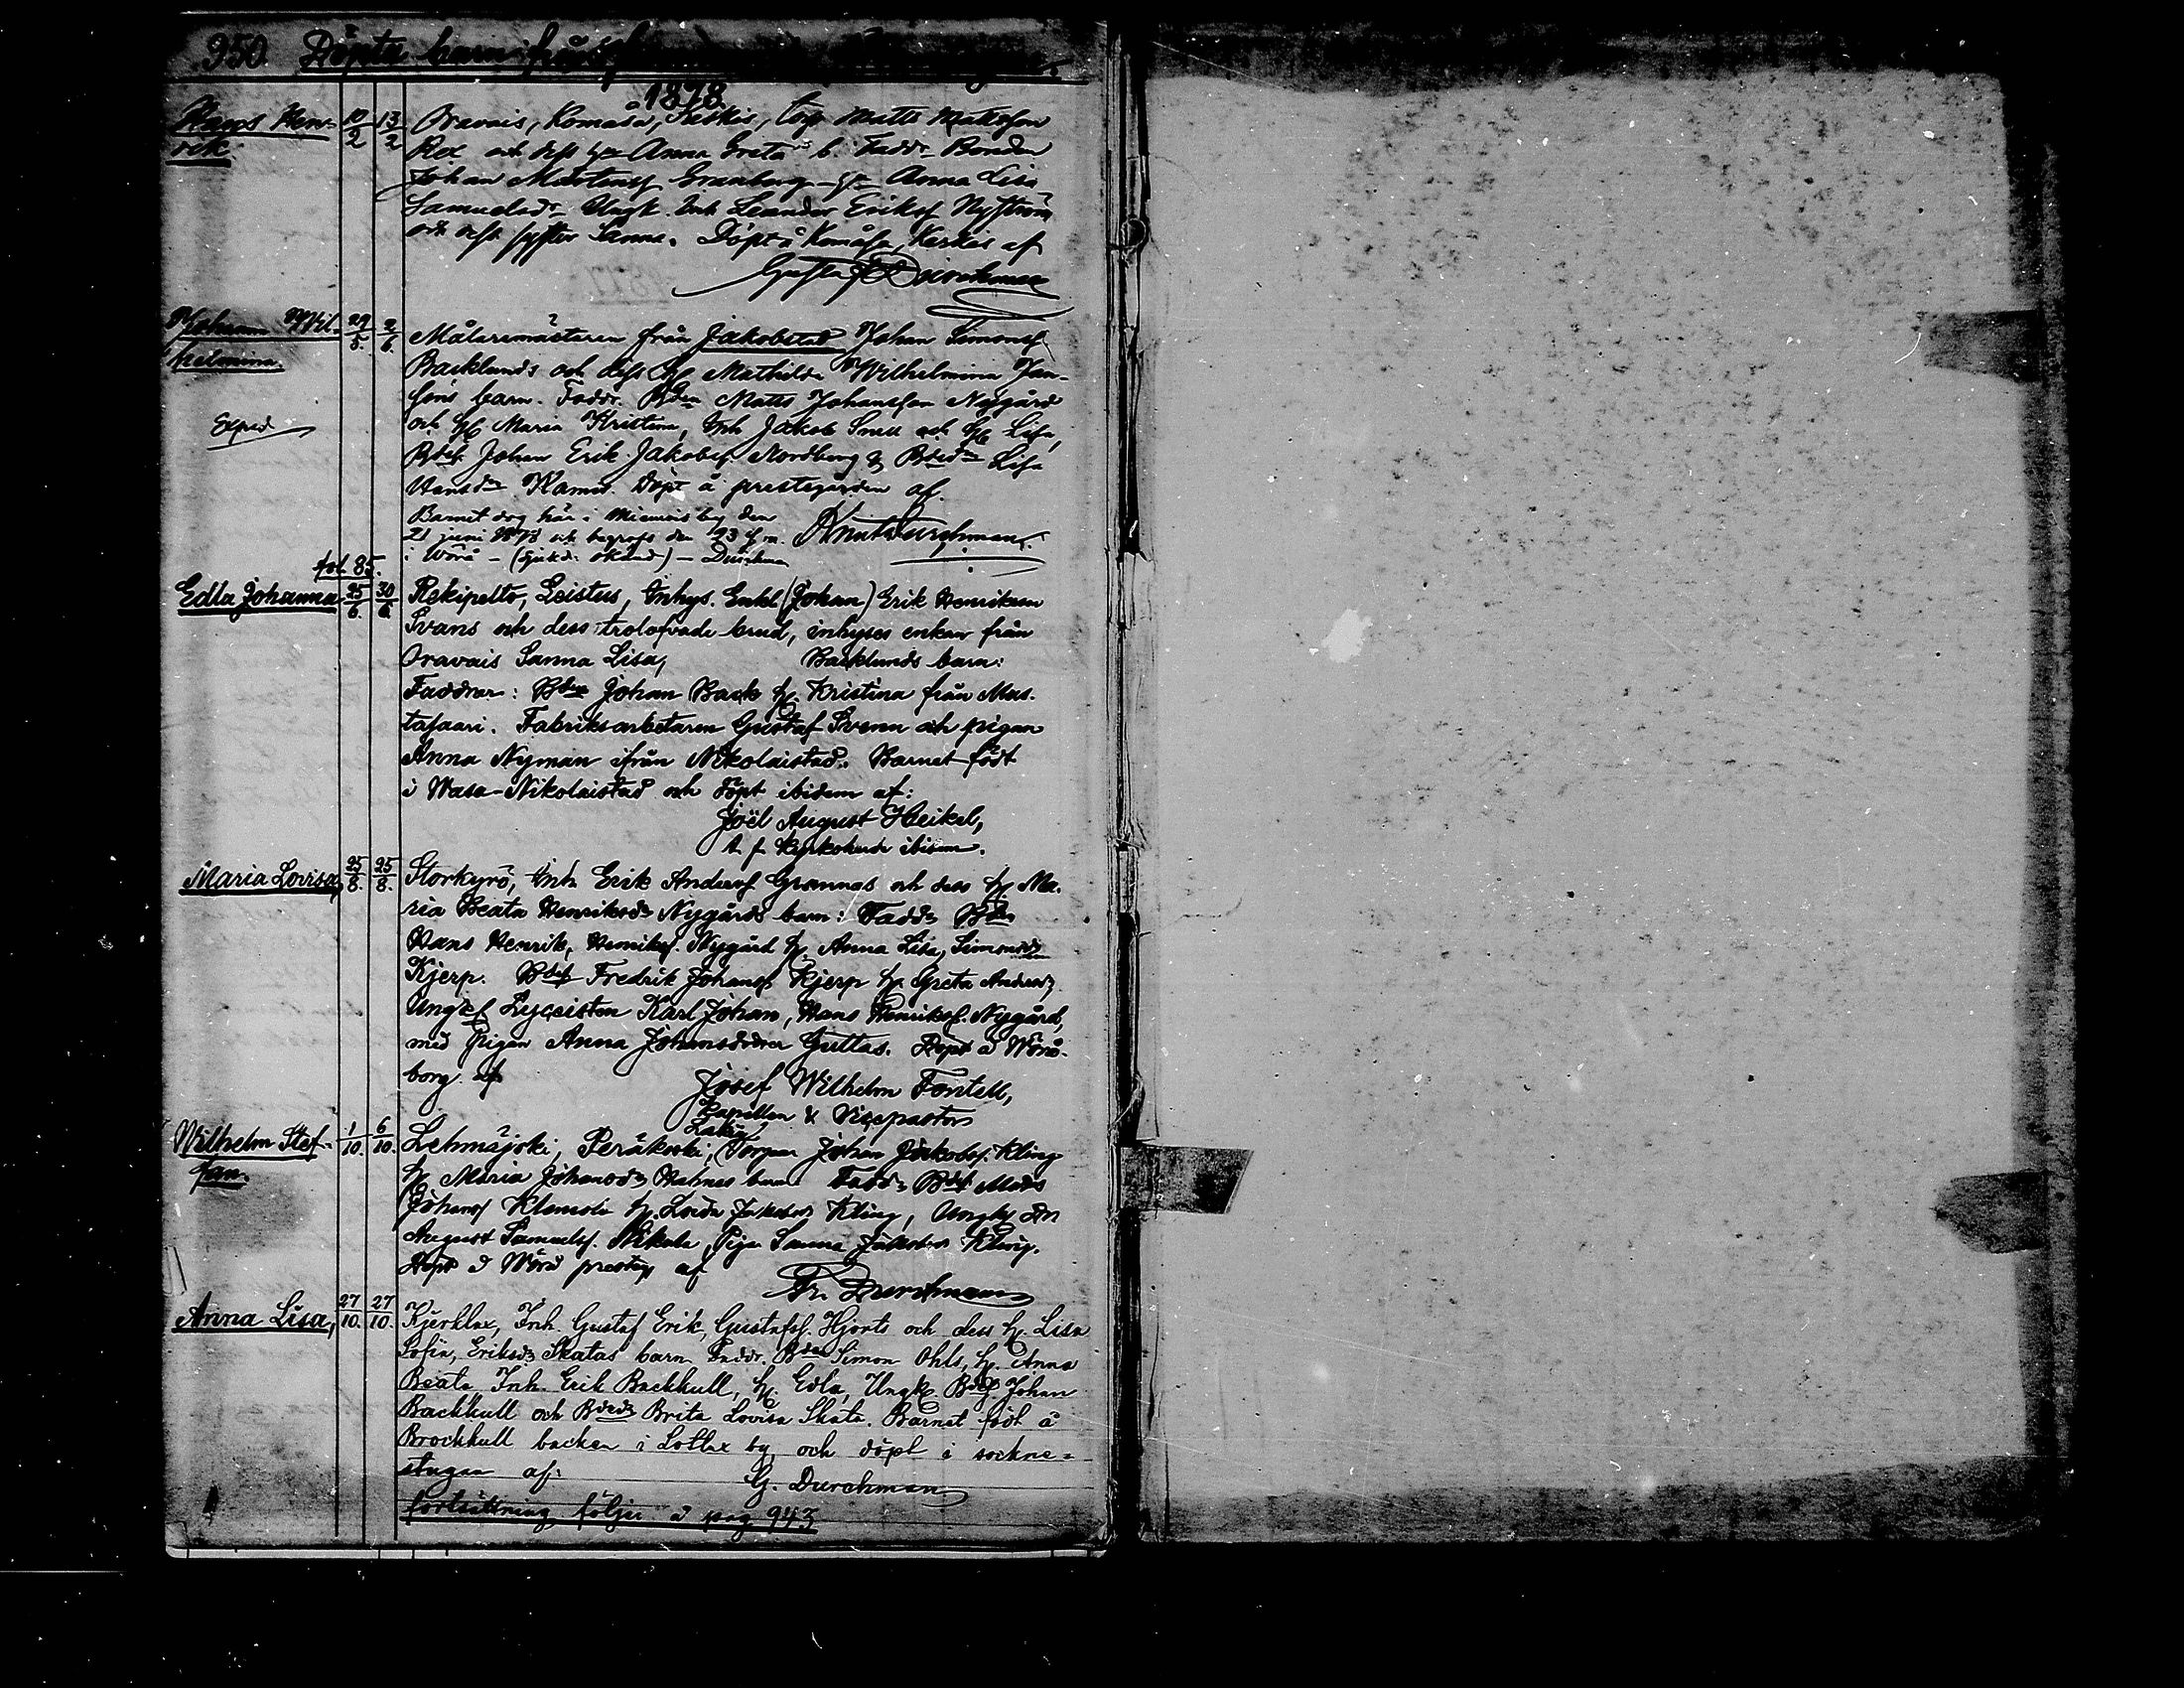 950. Döpta barn ifrån
1878.
Hans Hen- 10/2 13/2 Oravais, Komåsa, Keskis, torp. Matts Mattsson
rik. Rex och dess h. Anna Greta b. Faddr. Bonden
Johan Mårtenss Granberg Anna Lisa
Samuelsdr Ungk. Inh. Leander Erikss Nyström
och dess syster Sanna. Döpt å Komåsa, Keskis af
Gustaf Durchman
Johanna Wil- 29/5. 2/6. Målaremästaren från Jakobstad Johan Simonss
helmina. Backlunds och dess h. Mathilda Wilhelmina Jan-
sons barn. Faddr. Bden Matts Johansson Nygård
Exped och h. Maria Kristina, Inh Jakob Snell och h. Lisa,
Bdes. Johan Erik Jakobss. Nordberg & Bdedn Lisa
Hansdr Kamis. Döpt å prestegården af.
Barnet dog här i Miemois by den
21 juni 1878 och begrofs den 23 i Knut Durchman.
i Wörå - (sjukd: okänd) - Durchman
fol. 85.
Edla Johanna 25/6. 30/6. Rekipelto, Leistus, Inhys. Enkl. (Johan) Erik Henriksson
Svans och dess trolofvade brud, inhyses enkan från
Oravais Sanna Lisa, Backlunds barn:
Faddrar: Bden Johan Back h. Kristina från Mus-
tasaari. Fabriksarbetaren Gustaf Svenn och pigan
Anna Nyman ifrån Nikolaistad. Barnet födt
i Wasa-Nikolaistad och döpt ibidem af:
Joël August Heikel,
t. f. kyrkoherde ibidem.
Maria Lovisa, 25/8. 25/8. Storkyrö, Inh. Erik Anderss Grannas och dess h. Ma-
ria Beata Henriksdr Nygårds barn: Faddr Bden
Hans Henrik, Henrikss. Nygård h. Anna Lisa, Simonsdr
Kjerp. Bdes Fredrik Johanss Kjerp h. Greta Andersdr
Ungk. Lyceisten Karl Johan, Hans Henrikss. Nygård,
med Pigan Anna Johansdotter Gullas. Döpt å Wörå-
borg af Josef Wilhelm Fontell,
Kapellan & Vicepastor
Wilhelm Stef- 1/10. 6/10. Lehmäjoki, Peräkoski, Torpar Johan Jakobss. Kling
fan. h. Maria Johansdr Hahnes barn Faddr Bdes Matts
Johanss Klemola h. Lovisa Jakobsdr Kling, Ungk
August Samuelss. Nikola, Piga Sanna Jakobsdr Kling.
Döpt å Wörå prestg af
Fr. Durchman
Anna Lisa, 27/10. 27/10. Kjerklax, Inh. Gustaf Erik, Gustafss. Hjorts och dess h. Lisa
Sofia, Eriksdr Skatas barn Faddr. Bden Simon Ohls, h. Anna
Beata, Inh. Erik Backkull, h. Edla, Ungk. Bdes. Johan
Backkull och Bdedr Brita Lovisa Skata. Barnet födt å
Brockkull backen i Lotlax by, och döpt i sockne-
stugan af: G. Durchman
fortsättning följer å pag 943